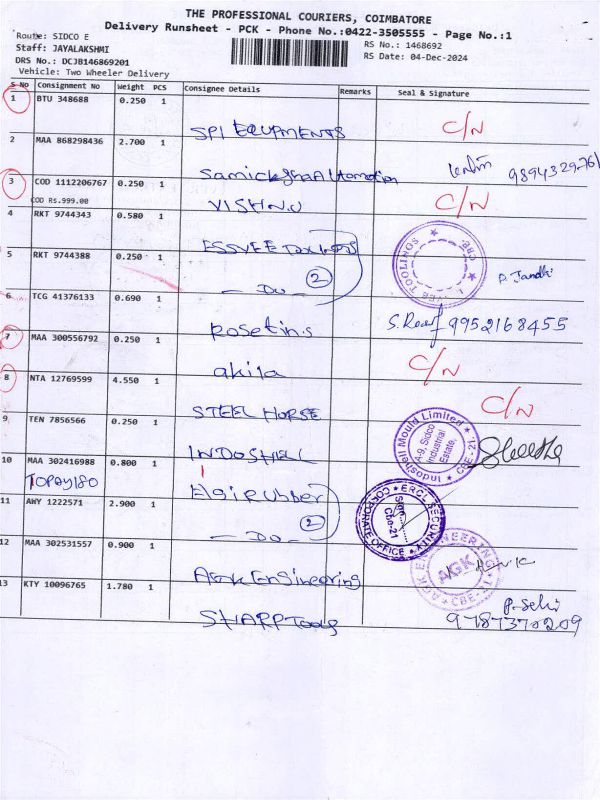 THE PROFESSIONAL COURIERS, COIMBATORE
Delivery Runsheet - PCK - Phone No.:0422-3505555 - Page No.:1
Route: SIDCO E
Staff: JAYALAKSHMI
DRS No.: DCJB146869201
Vehicle: Two Wheeler Delivery
RS No.: 1468692
RS Date: 04-Dec-2024
S No Consignment No Weight PCS Consignee Details Remarks Seal & Signature
1 BTU 348688 0.250 1 SPI EQUPMENTS C/N
2 MAA 868298436 2.700 1 Samicksha Automation 9894329761
3 COD 1112206767 0.250 1 VISHNU C/N
COD Rs.999.00
4 RKT 9744343 0.580 1 ESSVEE
5 RKT 9744388 0.250 1 - Do - 2 P. Jandhi
6 TCG 41376133 0.690 1 Rosetins 9952168455
7 MAA 300556792 0.250 1 akila C/N
8 NTA 12769599 4.550 1 STEEL HORSE C/N
9 TEN 7856566 0.250 1 INDOSHELL
Indoshell Mould Limited
A-9, Sidco
Industrial
Estate,
CBE-21
10 MAA 302416988 0.800 1 Elgi Rubber
TOPAY180
11 AWY 1222571 2.900 1 - Do - 2
ERCL SECURITY
Sign
Cbe-21
CORPORATE OFFICE
12 MAA 302531557 0.900 1 AGK Engineering
AGK ENGINEERING
AGK
CBE-21
13 KTY 10096765 1.780 1 SHARP Tools P. Selvi
9787370209